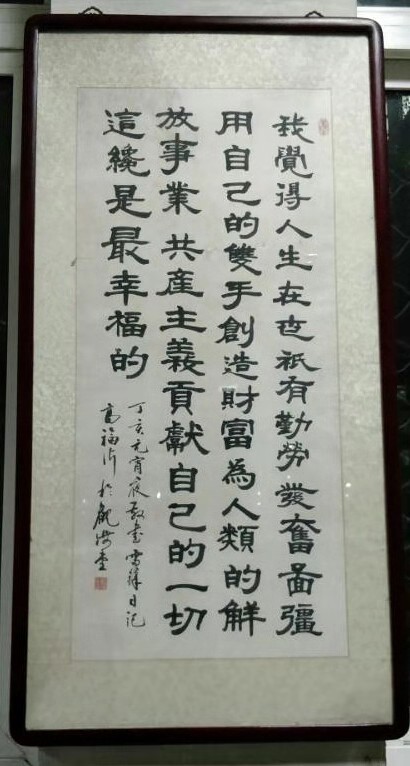 我覺得人生在世祇有勤勞發奮啚彊
用自己的雙手創造財富為人類的解
放事業共產主義貢獻自己的一切
這纔是最幸福的
丁亥元宵夜敬書雷鋒日記
高福 於觀